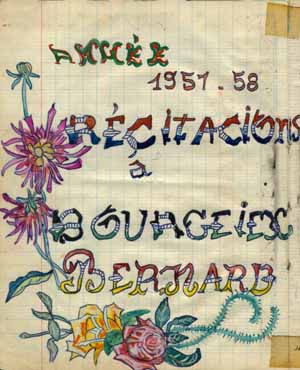 ANNÉE
1957.58
RÉCITACIONS
à
BOURGEIEX
BERNARD